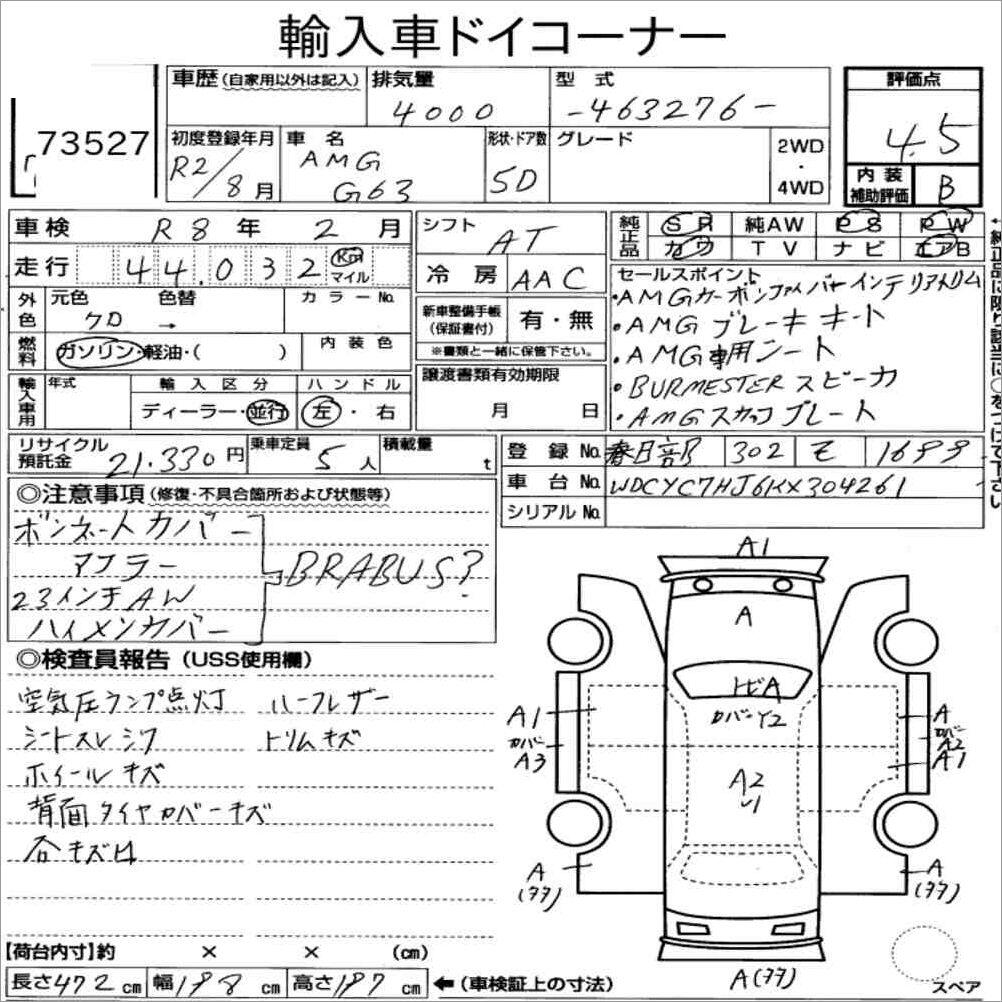 輸入車ドイコーナー
73527
車歴 (自家用以外は記入) 排気量 型式 評価点
4000 -463276- 4.5
初度登録年月 車名 形状・ドア数 グレード 2WD・4WD
R2/8月 AMG G63 5D
内装補助評価 B
車検 R8年 2月
走行 44.032 Km マイル
外色 元色 色替 カラーNo.
クロ →
燃料 ガソリン・軽油・( ) 内装色
輸入車用 年式 輸入区分 ハンドル
ディーラー・並行 左・右
シフト AT
冷房 AAC
新車整備手帳(保証書付) 有・無
※書類と一緒に保管下さい。
譲渡書類有効期限
月 日
純正品 SR 純AW PS PW
カワ TV ナビ エアB
セールスポイント
・AMGカーボンファイバーインテリアトリム
・AMGブレーキキート
・AMG専用シート
・BURMESTERスピーカ
・AMGスカッフプレート
リサイクル預託金 21.330円 乗車定員 5人 積載量 t
登録No. 春日部 302 モ 1699
車台No. WDCYC7HJ6KX304261
シリアルNo.
◎注意事項(修復・不具合箇所および状態等)
ボンネートカバー
マフラー
23インチAW
ハイメンカバー
BRABUS?
◎検査員報告(USS使用欄)
空気圧ランプ点灯 ハーフレザー
シートスレシワ トリムキズ
ホイールキズ
背面タイヤカバーキズ
谷キズ凹
A1
A
トビA
カバーY2
A1
カバー
A3
A
カバー
A2
A1
A2
A
(クク)
A
(クク)
A(クク)
スペア
【荷台内寸】約 × × (cm)
長さ472cm 幅198cm 高さ197cm ←(車検証上の寸法)